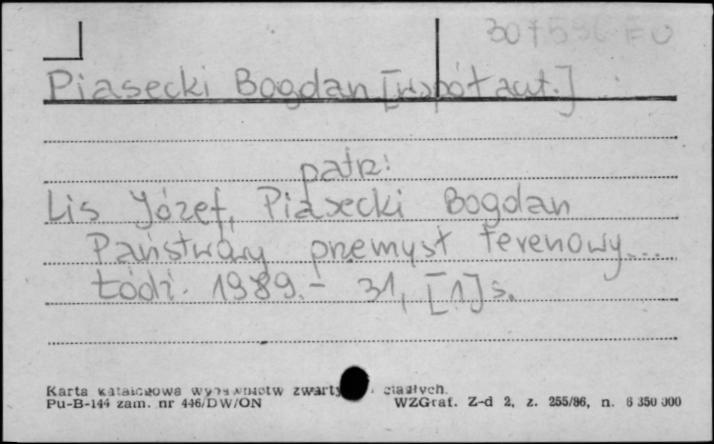 307596 EO
Piasecki Bogdan [współaut.]
patrz:
Lis Józef, Piasecki Bogdan
Państwowy przemysł terenowy...
Łódź. 1989.- 31, [1] s.
Karta katalogowa wydawnictw zwartych
Pu-B-144 zam. nr 446/DW/ON WZGraf. Z-d 2, z. 255/86, n. 6 350 000